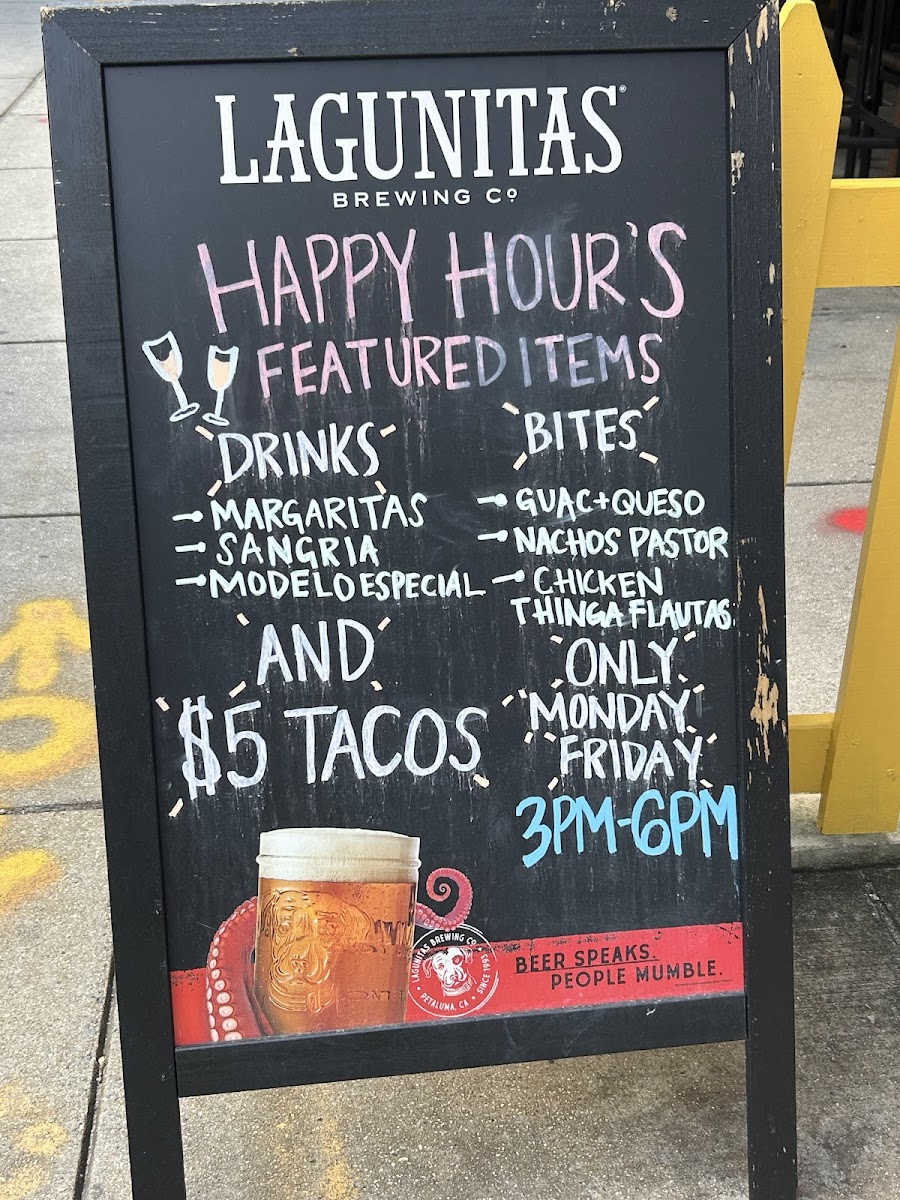 LAGUNITAS
BREWING Cº
HAPPY HOUR'S
FEATURED ITEMS
DRINKS
MARGARITAS
SANGRIA
MODELO ESPECIAL
AND
$5 TACOS
BITES
GUAC+QUESO
NACHOS PASTOR
CHICKEN
THINGA FLAUTAS
ONLY
MONDAY
FRIDAY
3PM-6PM
LAGUNITAS BREWING CO.
SINCE 1993
PETALUMA, CA
BEER SPEAKS.
PEOPLE MUMBLE.